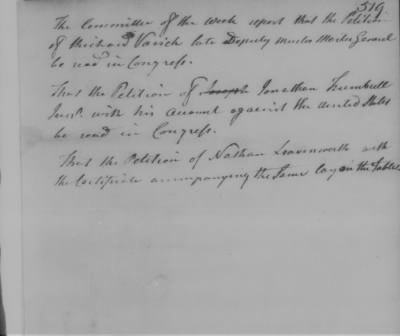 319.
The Committee of the Week report that the Petition
of Richard Varick late Deputy Muster Master General
be read in Congress.
That the Petition of Joseph Jonathan Trumbull
Junr. with his Account against the United States
be read in Congress.
That the Petition of Nathan Leavenworth with
the Certificate accompanying the same lay on the Table.